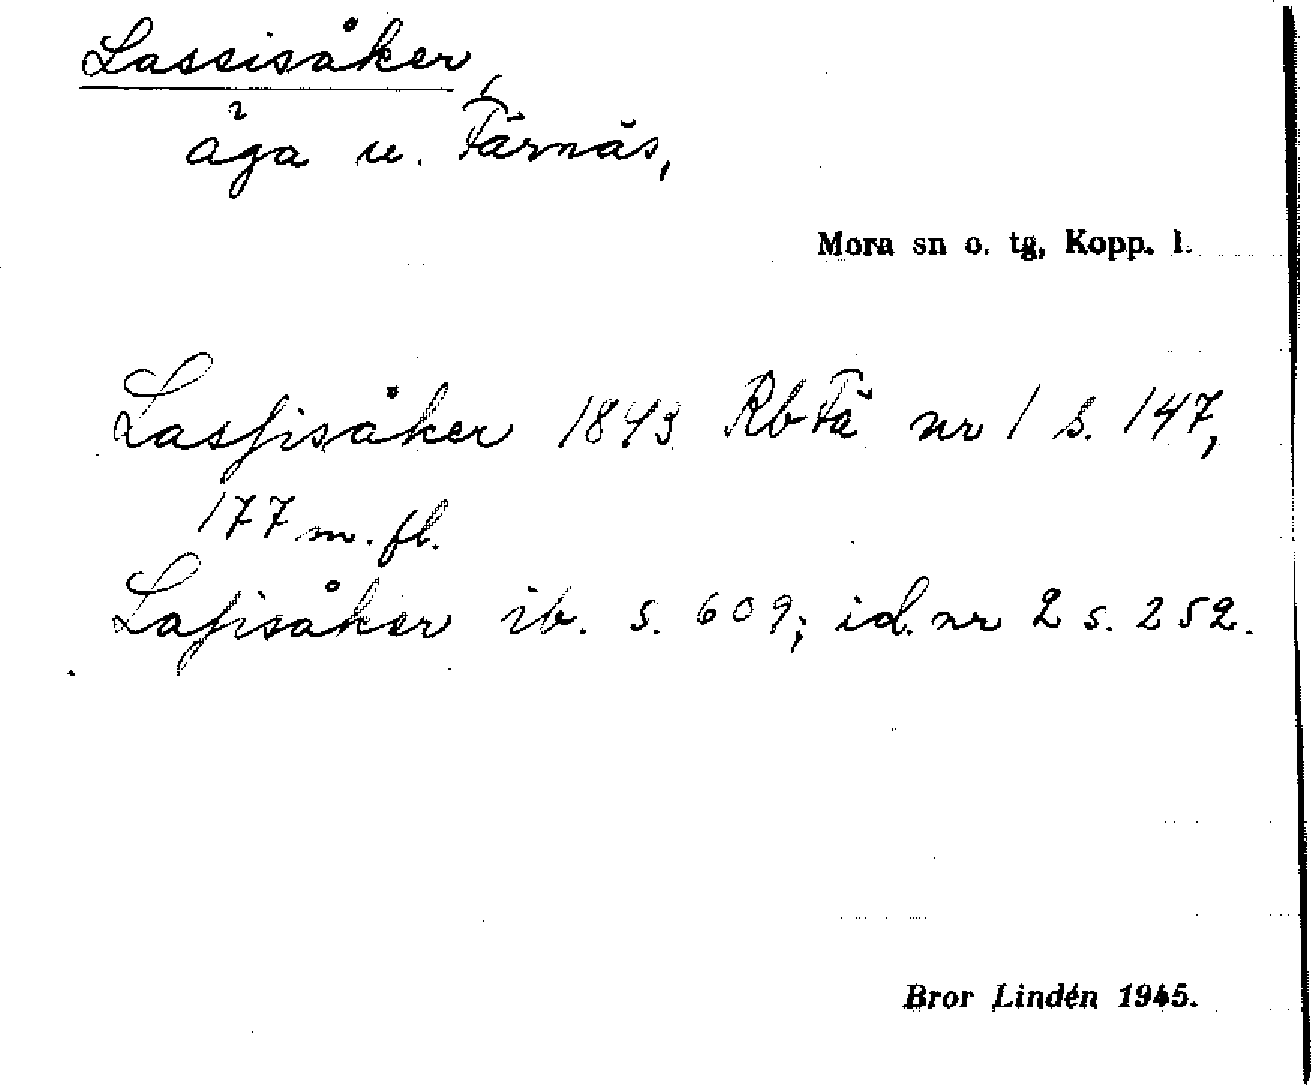 Lassisåker,
äga u. Färnäs,
Mora sn o. tg, Kopp. l.
Lasſisåker 1843 Rb Fä nr 1 s. 147,
177 m. fl.
Laſisåker ib. s. 609; id. nr 2 s. 252.
Bror Lindén 1945.